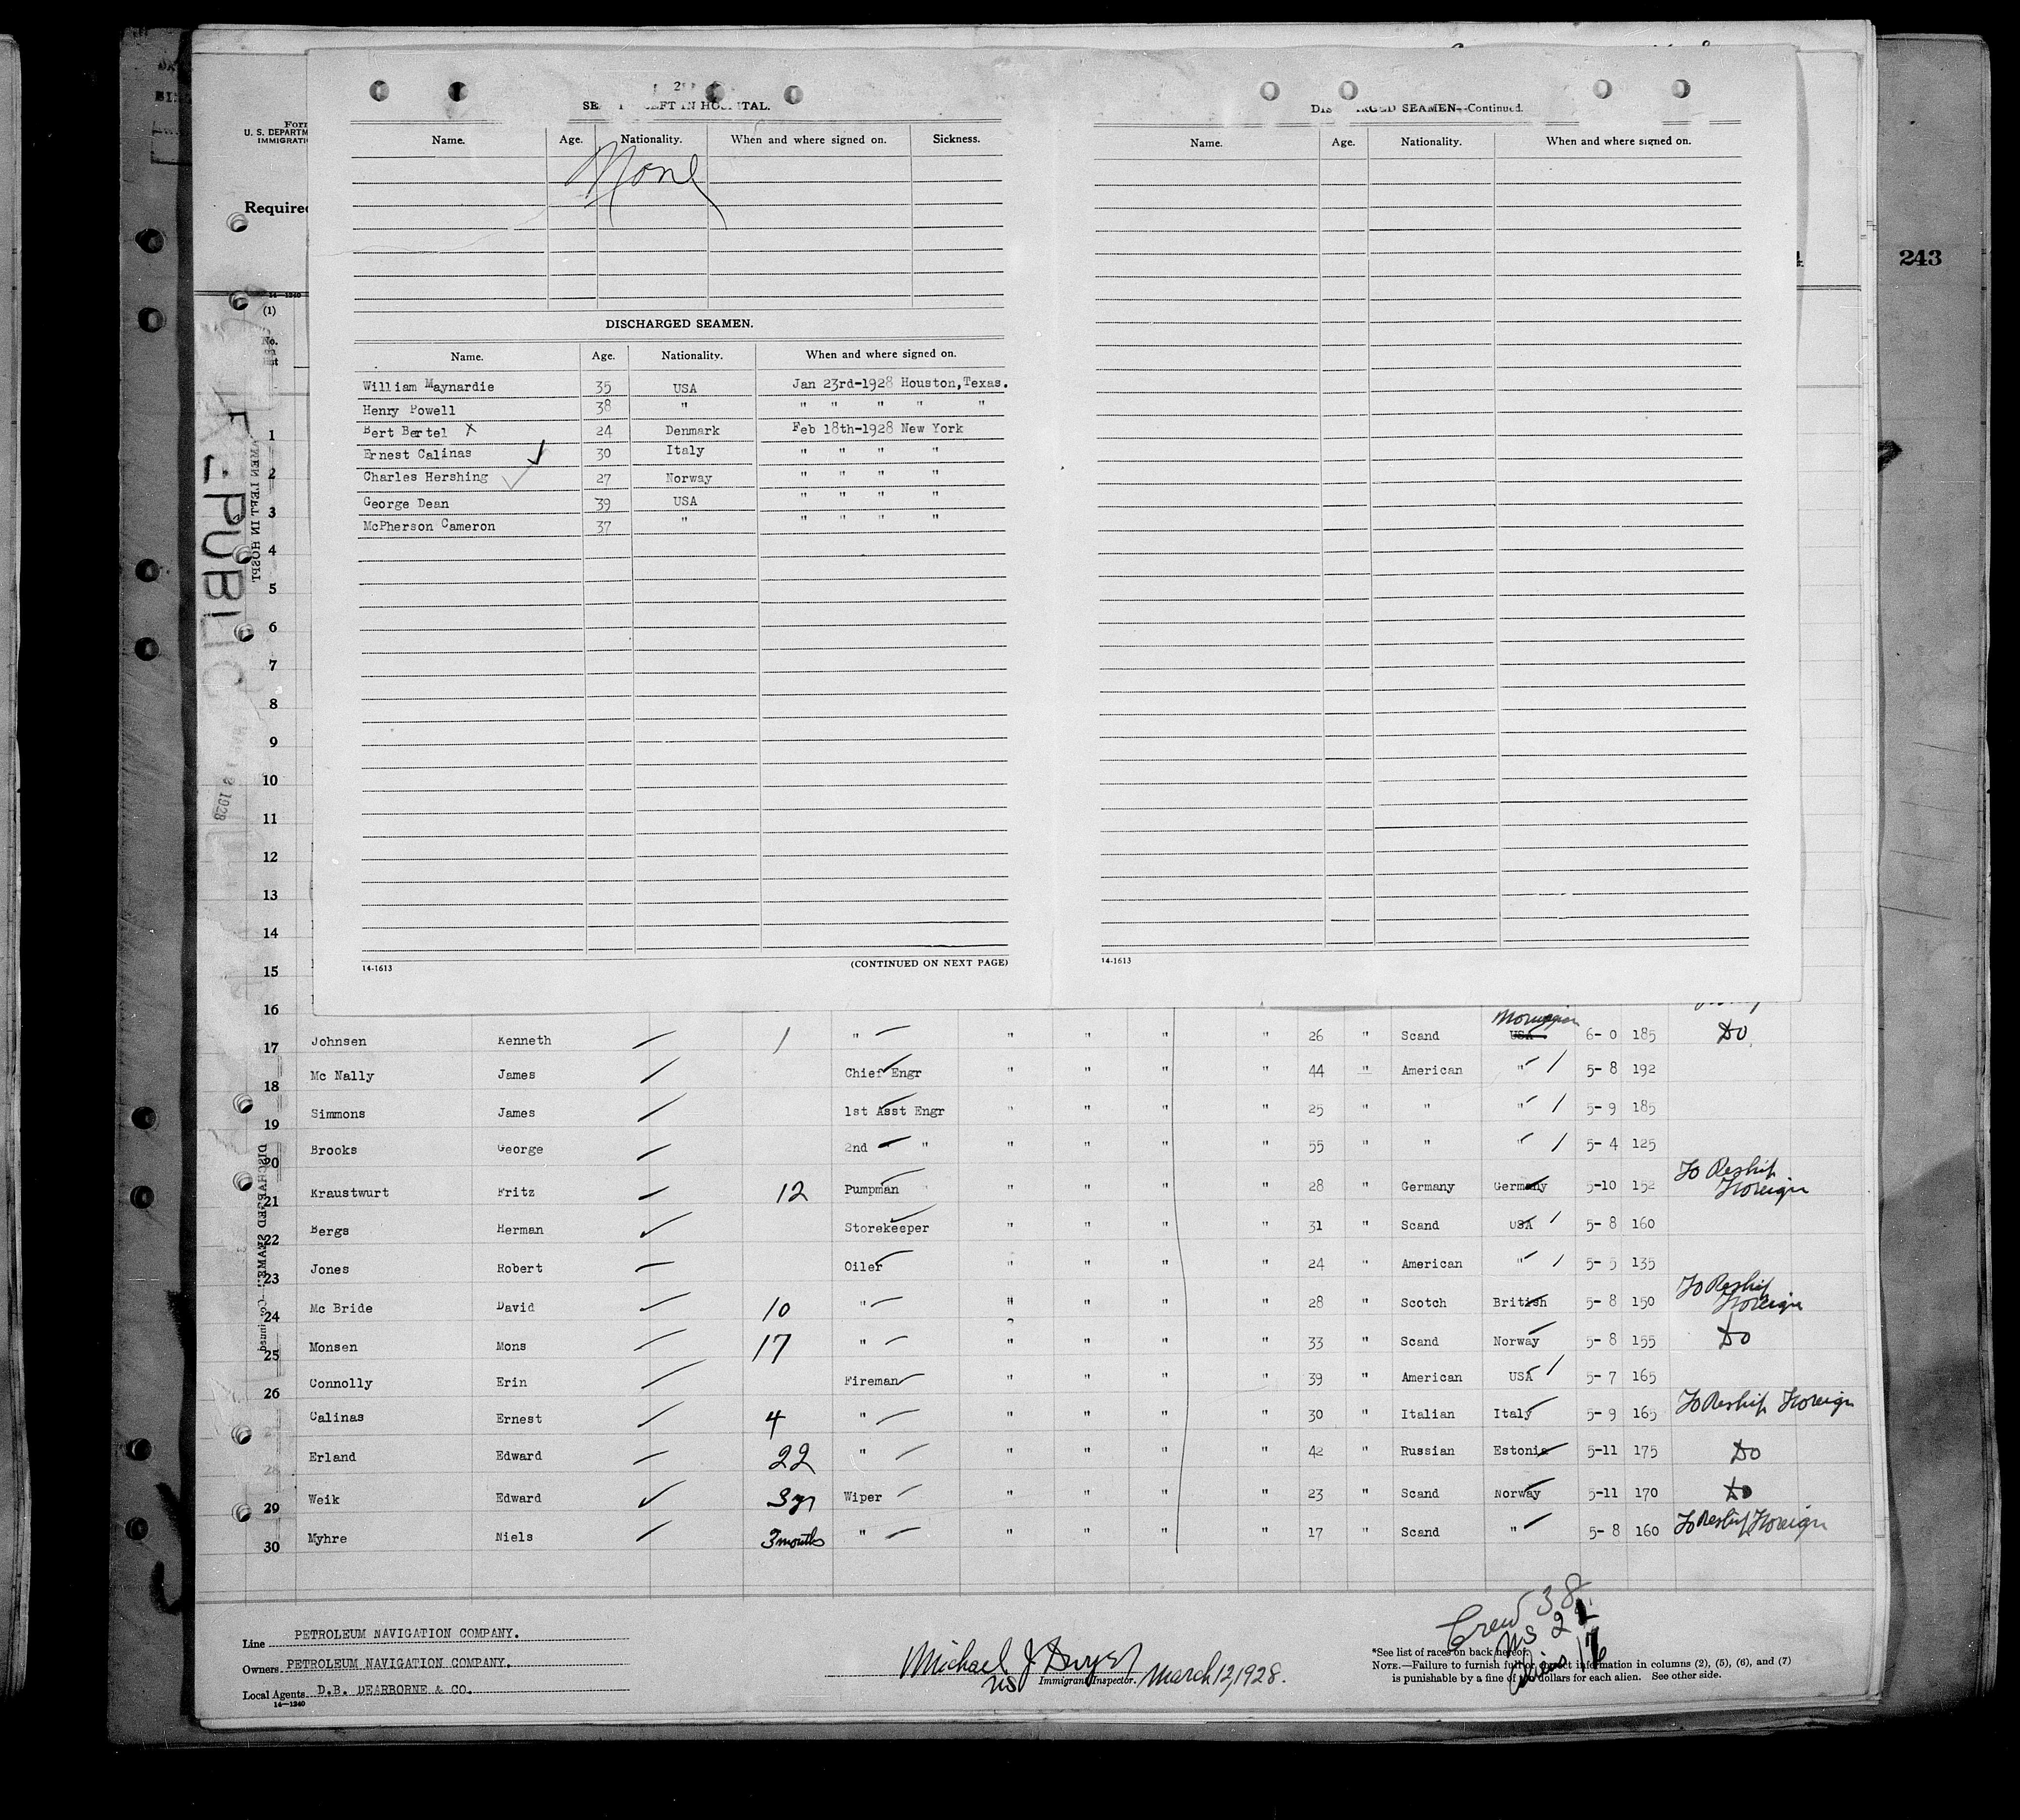 243
Form
U. S. DEPARTM
IMMIGRATI
Required
14—1240
(1)
No. on list
REPUBLIC
1928
SE LEFT IN HOSPITAL.
Name. Age. Nationality. When and where signed on. Sickness.
None
DISCHARGED SEAMEN.
Name. Age. Nationality. When and where signed on.
William Maynardie 35 USA Jan 23rd-1928 Houston,Texas.
Henry Powell 38 " " " " " "
Bert Bertel X 24 Denmark Feb 18th-1928 New York
Ernest Calinas ✓ 30 Italy " " " "
Charles Hershing ✓ 27 Norway " " " "
George Dean 39 USA " " " "
McPherson Cameron 37 " " " " "
14-1613 (CONTINUED ON NEXT PAGE)
DISCHARGED SEAMEN—Continued.
Name. Age. Nationality. When and where signed on.
14-1613
1
2
3
4
5
6
7
8
9
10
11
12
13
14
15
16
17 Johnsen Kenneth 1 " " " " " 26 " Scand Norwegian USA 6- 0 185 Do
18 Mc Nally James Chief Engr " " " " 44 " American " / 5- 8 192
19 Simmons James 1st Asst Engr " " " " 25 " " " / 5- 9 185
20 Brooks George 2nd " " " " " 55 " " " / 5- 4 125
21 Kraustwurt Fritz 12 Pumpman " " " " " 28 " Germany Germany 5-10 152 To Reship Foreign
22 Bergs Herman Storekeeper " " " " 31 " Scand USA / 5- 8 160
23 Jones Robert Oiler " " " " 24 " American " / 5- 5 135
24 Mc Bride David 10 " " " " " 28 " Scotch British 5- 8 150 To Reship Foreign
25 Monsen Mons 17 " " " " " 33 " Scand Norway 5- 8 155 Do
26 Connolly Erin Fireman " " " " 39 " American USA / 5- 7 165
Calinas Ernest 4 " " " " " 30 " Italian Italy 5- 9 165 To Reship Foreign
28 Erland Edward 22 " " " " " 42 " Russian Estonia 5-11 175 Do
29 Weik Edward 3 yr Wiper " " " " 23 " Scand Norway 5-11 170 Do
30 Myhre Niels 3 months " " " " " 17 " Scand " 5- 8 160 To Reship Foreign
Line PETROLEUM NAVIGATION COMPANY.
Owners PETROLEUM NAVIGATION COMPANY.
Local Agents D.B. DEARBORNE & CO.
14—1240
Michael J Dwyer March 12, 1928.
US Immigrant Inspector.
Crew 38
US 2
Aliens 1
*See list of races on back hereof.
NOTE.—Failure to furnish full or correct information in columns (2), (5), (6), and (7)
is punishable by a fine of dollars for each alien. See other side.